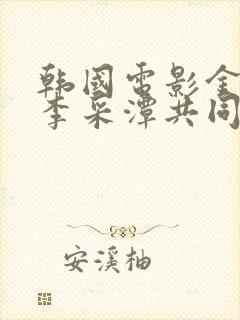 韩國電影金
李采潭共同
安溪柚